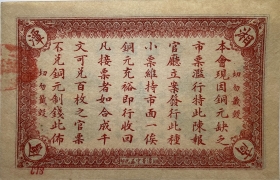 湘潭
本會現因銅元缺乏
市票濫行特此陳報
官廳立案發行此種
小票維持市面一俟
銅元充裕即行收回
凡接票者如合成千
文可兌百枚之官票
不兌銅元制錢此佈
切勿載毀
切勿載毀
618